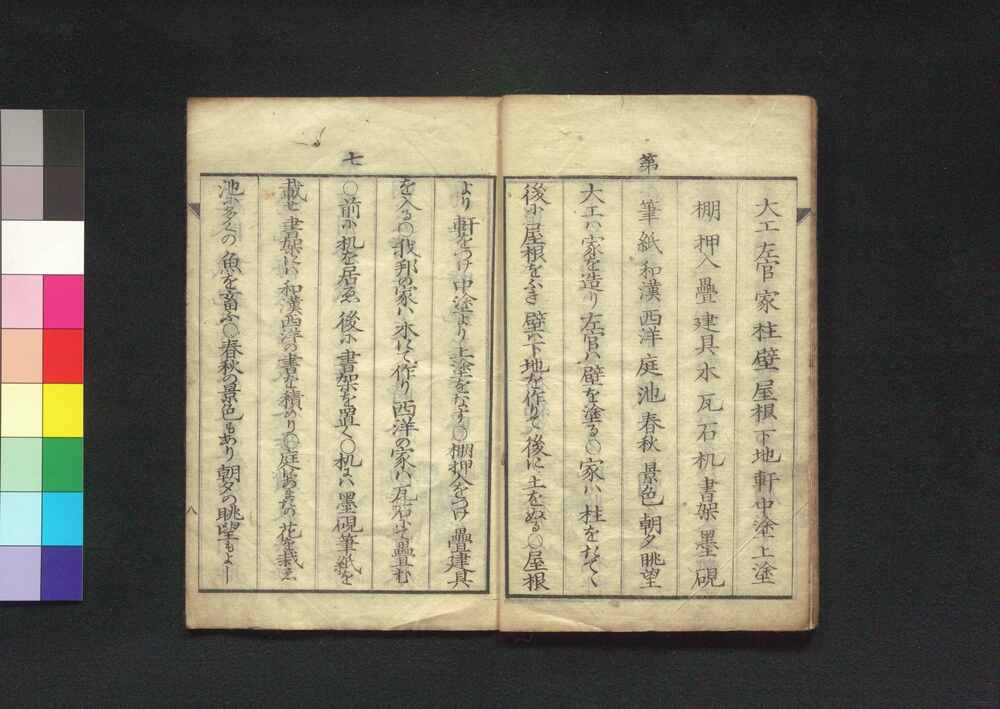 第
大工左官家柱壁屋根下地軒中塗上塗
棚押入疊建具木瓦石机書架墨硯
筆紙和漢西洋庭池春秋景色朝夕眺望
大工ハ家を造り左官ハ壁を塗る〇家ハ柱をたてゝ
後に屋根をふき壁ハ下地を作りて後に土をぬる〇屋根
七
より軒をつけ中塗より上塗をなす〇棚押入をつけ疊建具
を入る〇我邦の家ハ木にて作り西洋の家ハ瓦石にて疊む
〇前に机を居ゑ後に書架を置く〇机にハ墨硯筆紙を
載せ書架にハ和漢西洋の書を積めり〇庭にハ花を栽ゑ
池に多くの魚を畜ふ〇春秋の景色もあり朝夕の眺望もよし
八